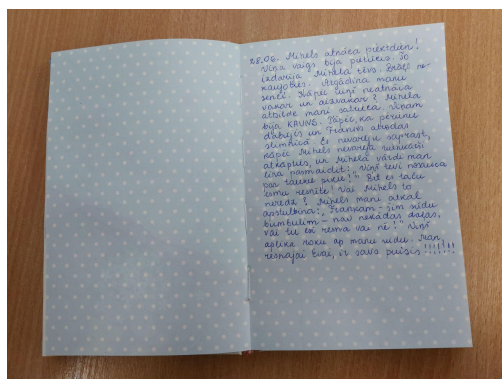 28.06. Mihels atnāca piektdien!
Viņa vaigs bija pušums. To
izdarīja Mihela tēvs.
kaujoties. Aizgādīna manu
Kāpēc viņš neatnāca
vakar un aizvakar? Mihela
atbilde mani satrieca. Viņam
bija KAUNS. Tāpēc, ka pērienu
dabūjis un Francis atrodas
slimnīcā. Es nevarēju saprast,
kāpēc Mihels nevarēja
atkāpties, un Mihela vārdi man
lika pasmaidīt: "Viņš tevi nosauca
par tauku cūku!" Bet es taču
esmu resnīte! Vai Mihels to
neredz? Mihels mani atkal
apstulbina: "Francim - šim sūdu
bumbulim - nav nekādas daļas,
vai tu esi resna vai nē!" Viņš
aplika roku ap manu vidu. Man,
resnajai Evai, ir savs puisis!!!!!!